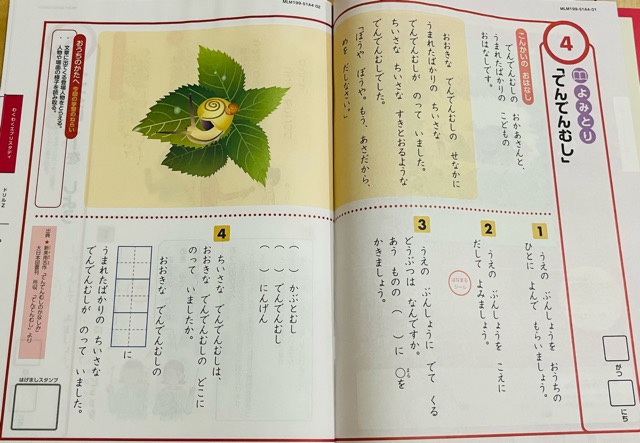 MLM199-S1A4-01
4
よみとり
「でんでんむし」
がつ
にち
こんかいの おはなし
でんでんむしの おかあさんと、
うまれたばかりの こどもの
おはなしです。
おおきな でんでんむしの せなかに
うまれたばかりの ちいさな
でんでんむしが のって いました。
ちいさな ちいさな すきとおるような
でんでんむしでした。
「ぼうや ぼうや。もう、あさだから、
めを だしなさい。」
1
うえの ぶんしょうを おうちの
ひとに よんで もらいましょう。
2
うえの ぶんしょうを こえに
だして よみましょう。
3
うえの ぶんしょうに でて くる
どうぶつは なんですか。
あう ものの ( )に ○を
まる
かきましょう。
( ) かぶとむし
( ) でんでんむし
( ) にんげん
4
ちいさな でんでんむしは、
おおきな でんでんむしの どこに
のって いましたか。
おおきな でんでんむしの
に
うまれたばかりの ちいさな
でんでんむしが のって いました。
MLM199-S1A4-02
おうちのかたへ 今回の学習のねらい
文章に出てくる登場人物をとらえる。
人物や場面の様子を読み取る。
わくわくエブリスタディ
ドリルZ
はげましスタンプ